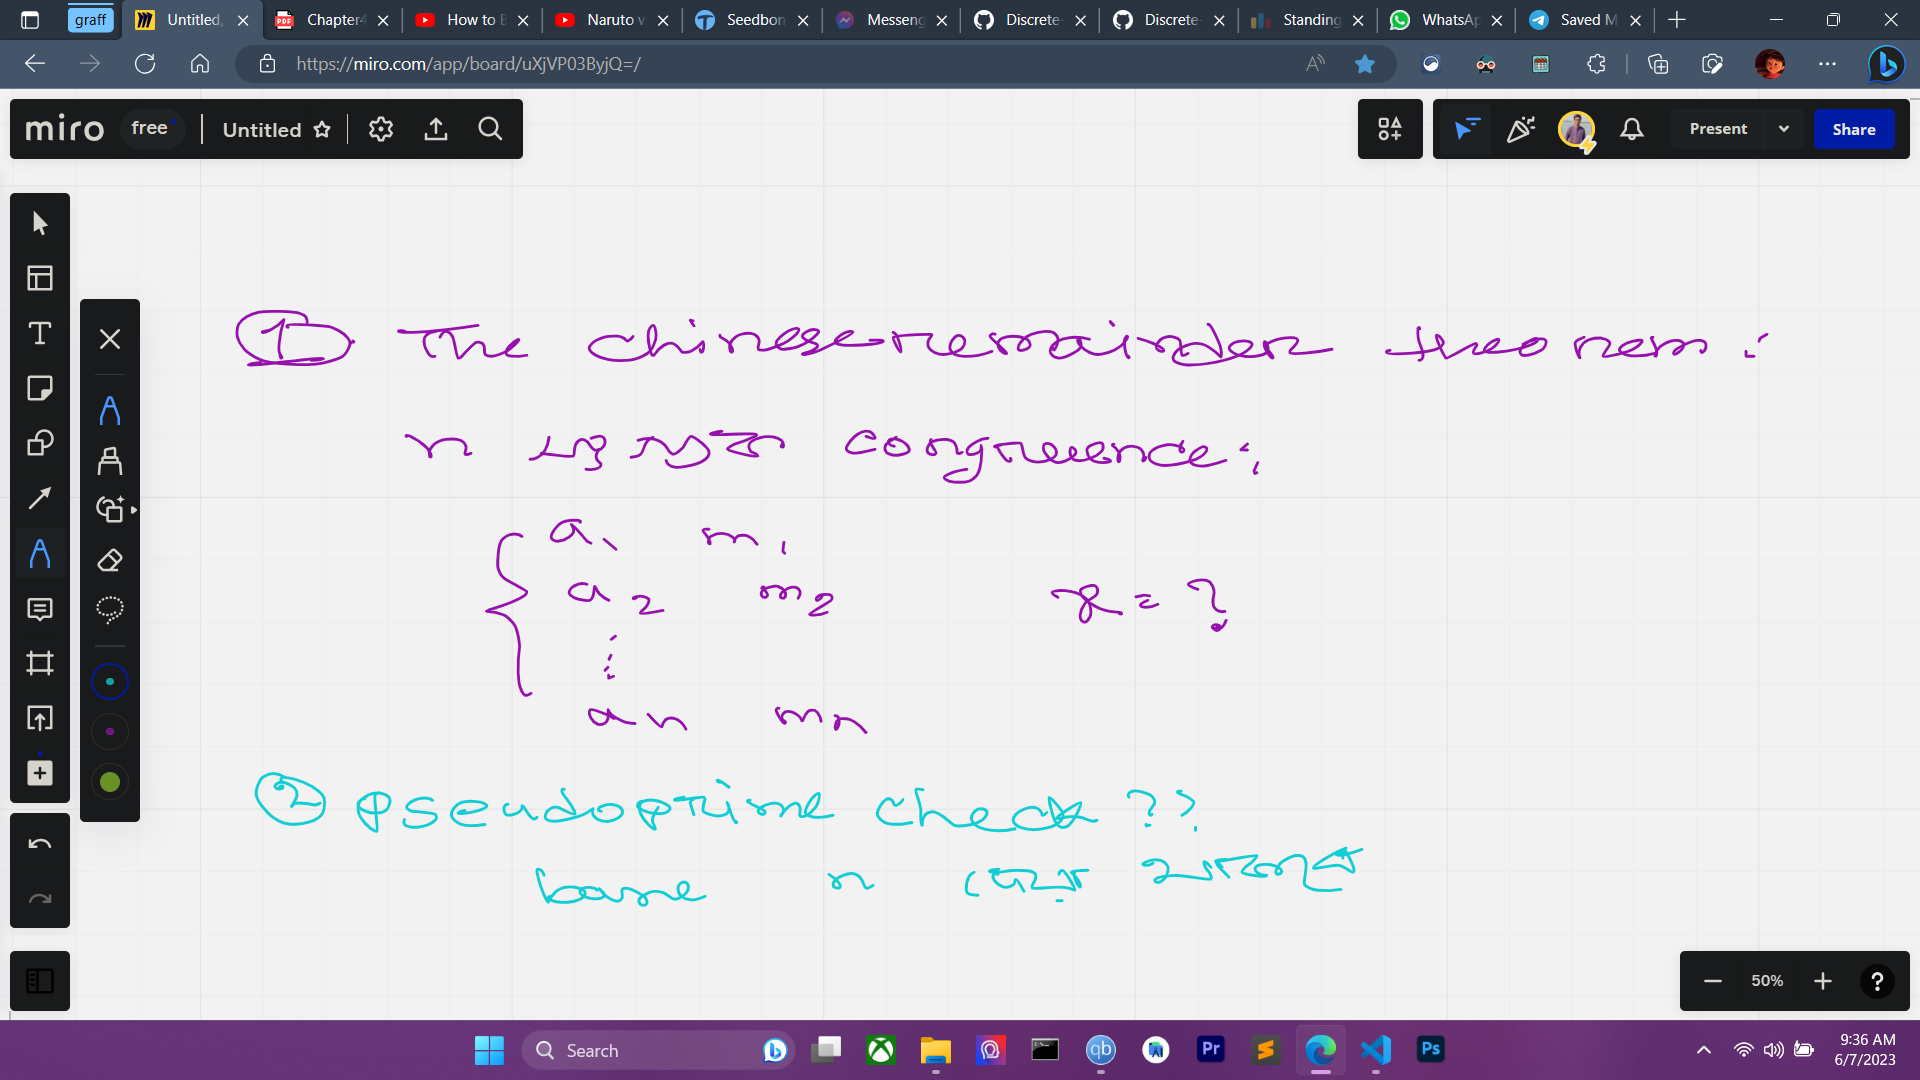 graff
Untitled,
Chapter4
How to B
Naruto v
Seedbon
Messeng
Discrete-
Discrete-
Standing
WhatsAp
Saved M
https://miro.com/app/board/uXjVP03ByjQ=/
miro free Untitled
Present
Share
① The chinese-remainder theorem :
n congruence :
a1 m1
a2 m2 x = ?
⋮
an mn
② pseudoprime check ??
base n
50%
Search
9:36 AM
6/7/2023